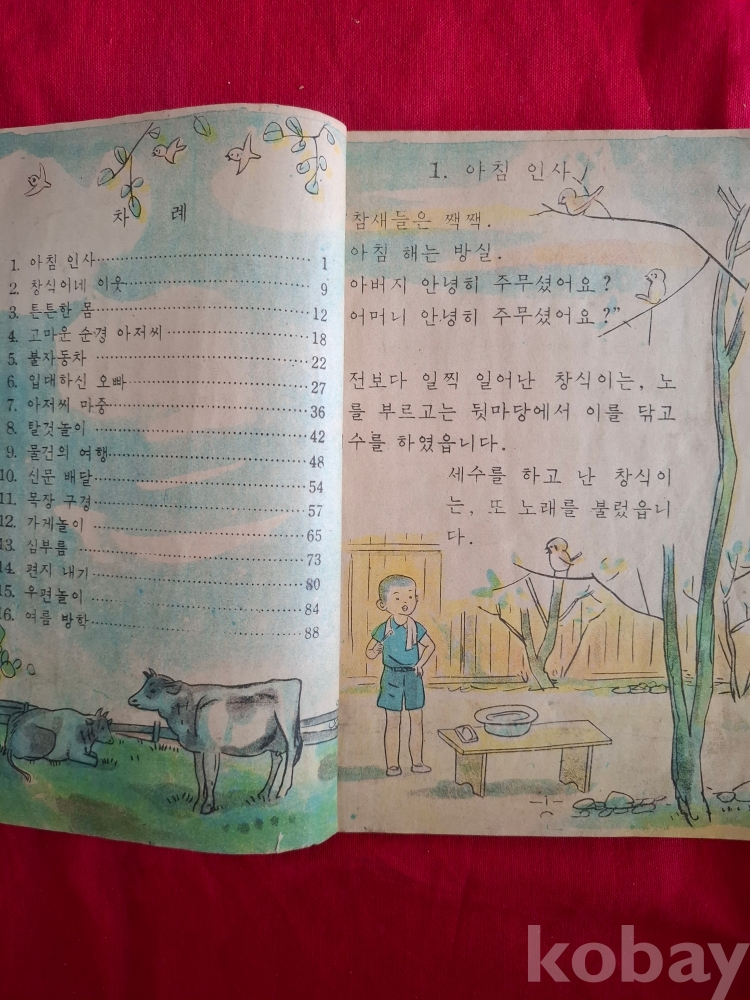 차 례
1. 아침 인사 1
2. 창식이네 이웃 9
3. 튼튼한 몸 12
4. 고마운 순경 아저씨 18
5. 불자동차 22
6. 입대하신 오빠 27
7. 아저씨 마중 36
8. 탈것놀이 42
9. 물건의 여행 48
10. 신문 배달 54
11. 목장 구경 57
12. 가게놀이 65
13. 심부름 73
14. 편지 내기 80
15. 우편놀이 84
16. 여름 방학 88
1. 아침 인사
참새들은 짹짹.
아침 해는 방실.
아버지 안녕히 주무셨어요?
어머니 안녕히 주무셨어요?”
전보다 일찍 일어난 창식이는, 노
를 부르고는 뒷마당에서 이를 닦고
수를 하였읍니다.
세수를 하고 난 창식이
는, 또 노래를 불렀읍니
다.
kobay